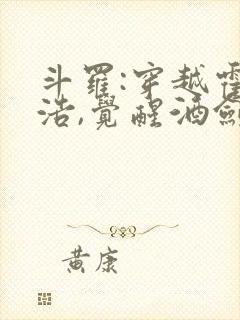 斗羅:穿越
浩,覺醒酒劍
黃康